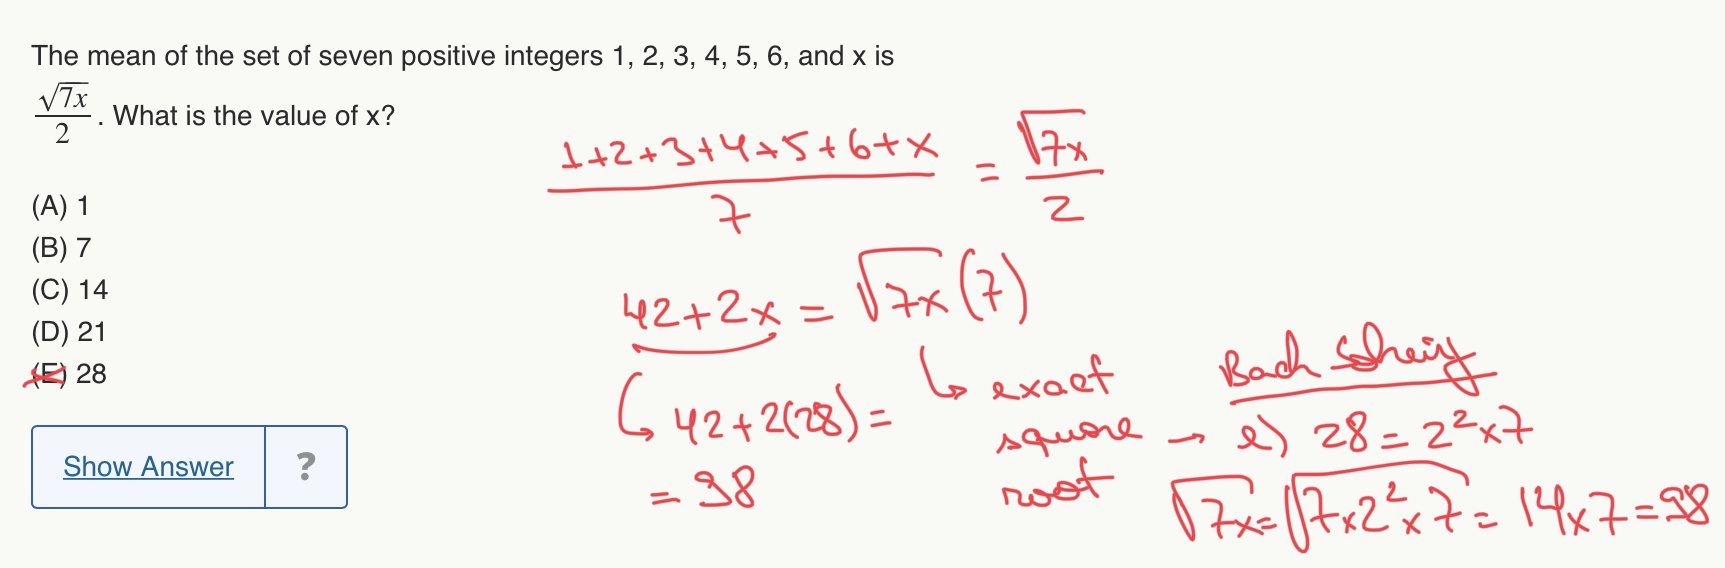 The mean of the set of seven positive integers 1, 2, 3, 4, 5, 6, and x is
√7x/2. What is the value of x?
(A) 1
(B) 7
(C) 14
(D) 21
(E) 28
Show Answer ?
(1+2+3+4+5+6+x)/7 = √7x/2
42+2x = √7x (7)
↳ 42+2(28) =
= 98
↳ exact
square
root
→ e) 28 = 2²x7
√7x = √7x2²x7 = 14x7=98